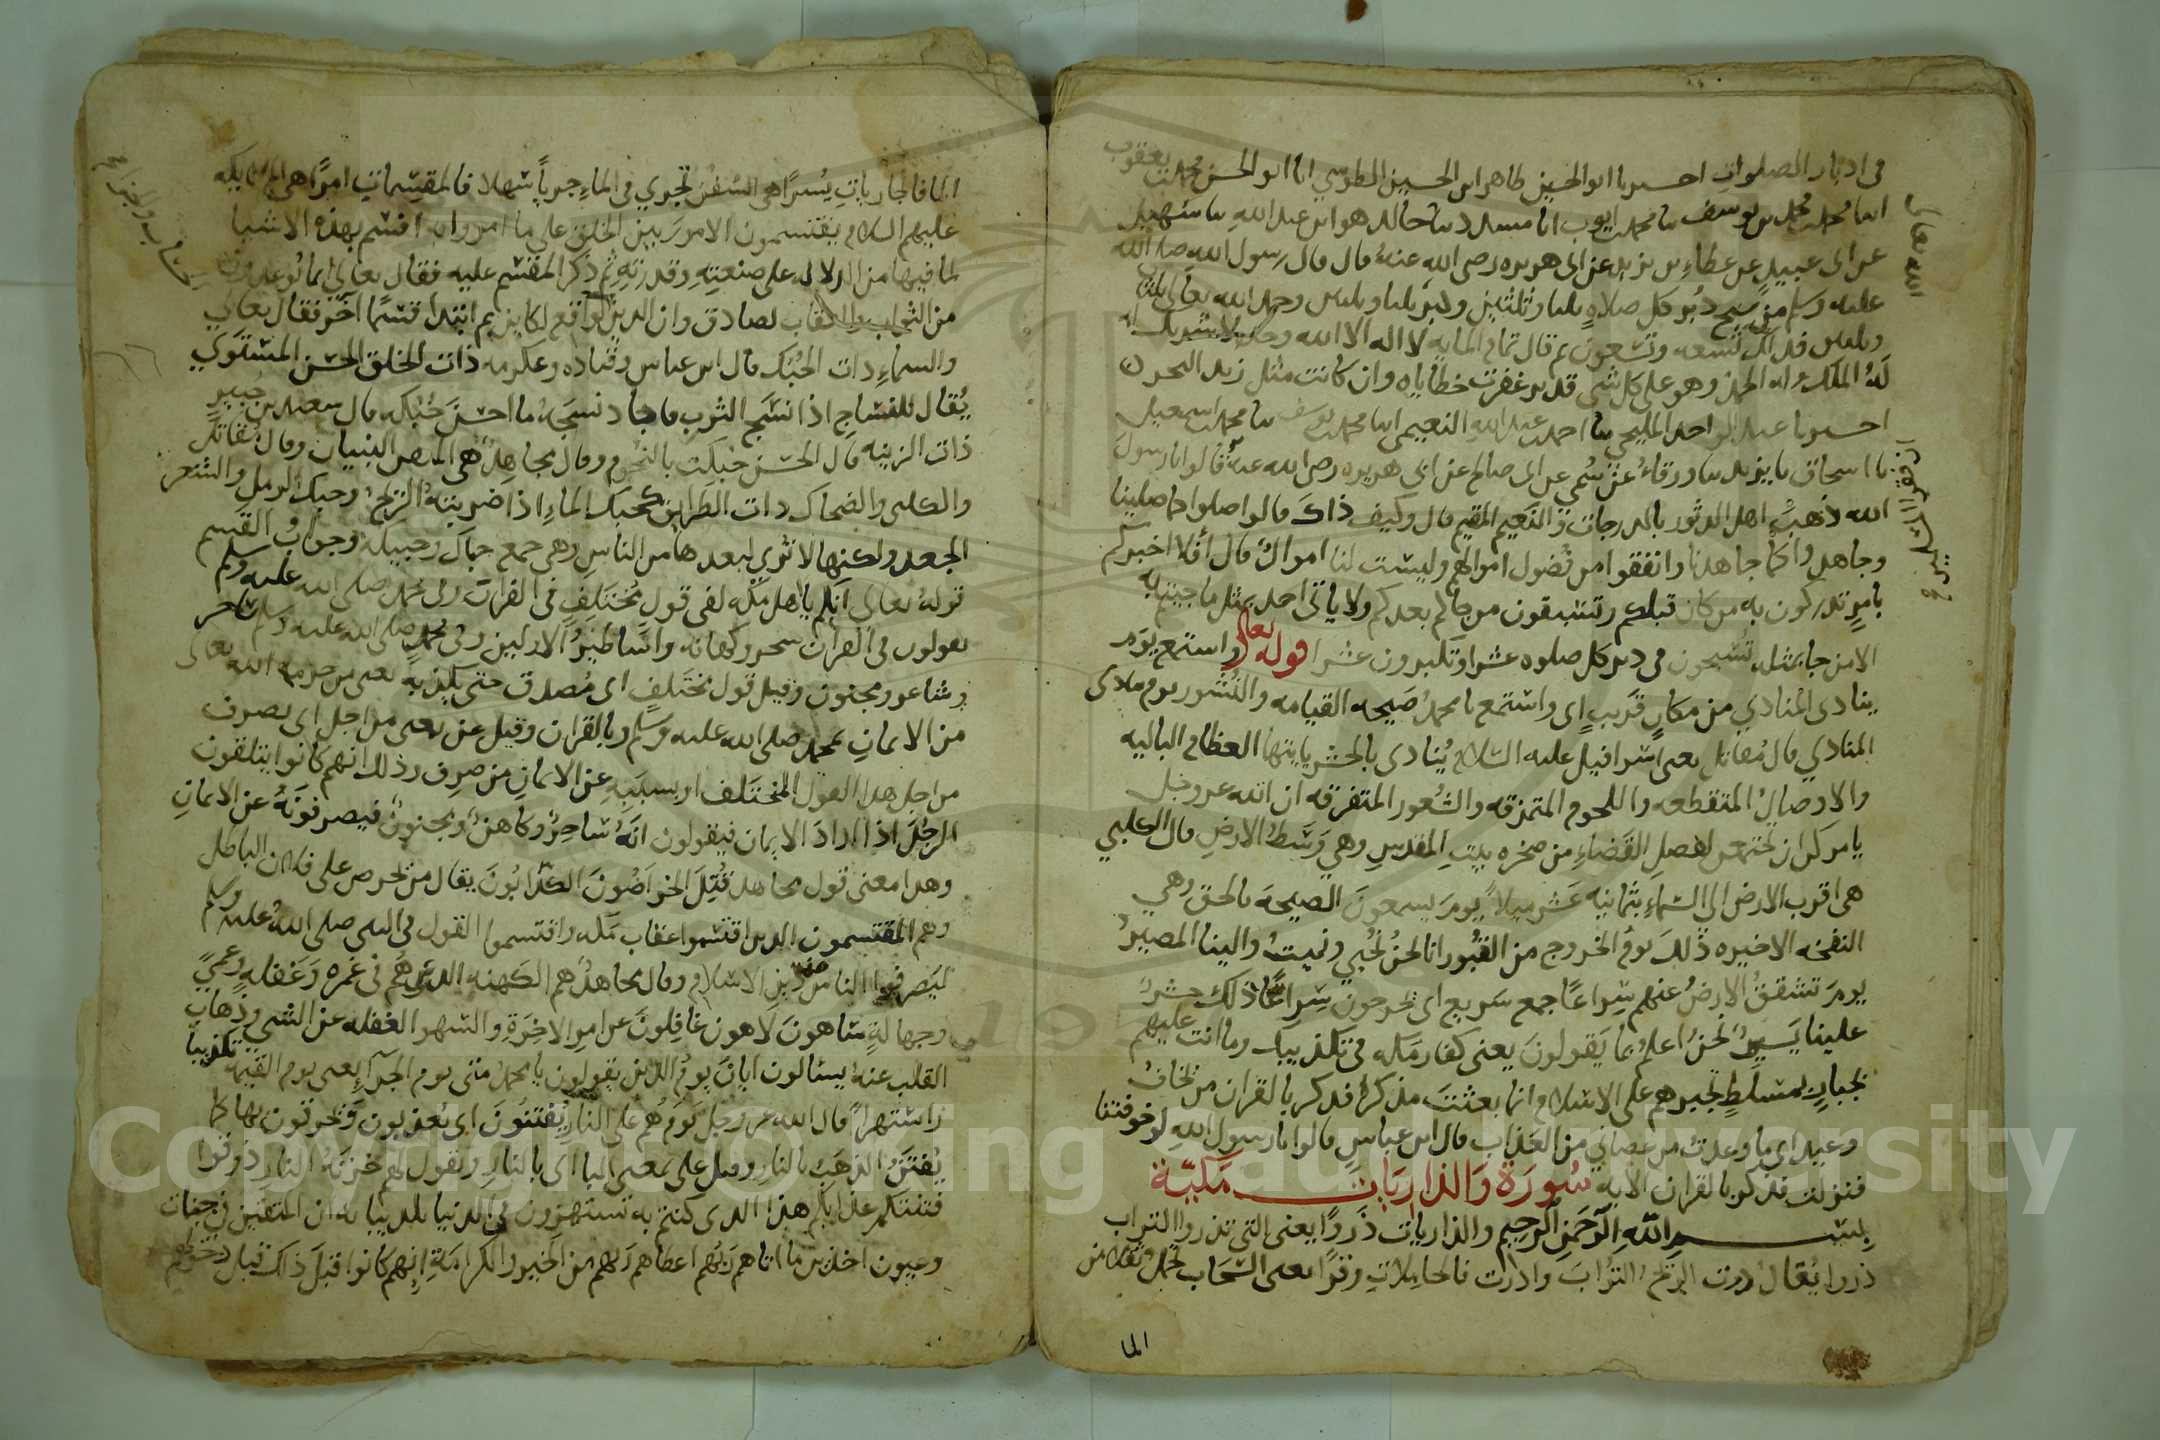 في ادبار الصلوات اخبرنا ابو الحسين طاهر بن الحسين الطوسي انا ابو الحسن محمد بن يعقوب
انبا محمد بن محمد بن يوسف نا محمد بن ايوب انا مسدد نا خالد هو ابن عبد الله نا سهيل
عن ابي عبيد عن عطاء بن يزيد عن ابي هريره رضي الله عنه قال قال رسول الله صلى الله
عليه وسلم من سبح دبر كل صلاه ثلثا وثلثين وكبر ثلثا وثلثين وحمد الله تعالى ثلثا
وثلثين فذلك تسعه وتسعون ثم قال تمام المايه لا اله الا الله وحده لا شريك له
له الملك وله الحمد وهو على كل شي قدير غفرت خطاياه وان كانت مثل زبد البحر
اخبرنا عبد الواحد المليحي نا احمد بن عبد الله النعيمي انبا محمد بن يوسف نا محمد بن اسمعيل
نا اسحاق نا يزيد نا ورقاء عن سمي عن ابي صالح عن ابي هريره رضي الله عنه قالوا يا رسول
الله ذهب اهل الدثور بالدرجات والنعيم المقيم قال وكيف ذاك قالوا صلوا كما صلينا
وجاهدوا كما جاهدنا وانفقوا من فضول اموالهم وليست لنا اموال قال أفلا اخبركم
بامر تدركون به من كان قبلكم وتسبقون من جا بعدكم ولا ياتي احد بمثل ما جيتم به
الا من جا بمثله تسبحون في دبر كل صلوه عشرا وتكبرون عشرا قوله تعالى واستمع يوم
ينادي المنادي من مكان قريب اي واستمع يا محمد صيحه القيامه والنشور يوم ينادي
المنادي قال مقاتل يعني اسرافيل عليه السلام ينادي بالحشر يا ايتها العظام الباليه
والاوصال المتقطعه واللحوم المتمزقه والشعور المتفرقه ان الله عز وجل
يامركن ان تجتمعن لفصل القضاء من صخره بيت المقدس وهي وسط الارض قال الكلبي
هي اقرب الارض الى السماء بثمانيه عشر ميلا يوم يسمعون الصيحة بالحق وهي
النفخه الاخيره ذلك يوم الخروج من القبور انا نحن نحيي ونميت والينا المصير
يوم تشقق الارض عنهم سراعا جمع سريع اي يخرجون سراعا ذلك حشر
علينا يسير نحن اعلم بما يقولون يعني كفار مكه في تكذيبك وما انت عليهم
بجبار بمسلط تجبرهم على الاسلام انما بعثت مذكرا فذكر بالقران من يخاف
وعيد اي ما وعدت من عصاني من العذاب قال ابن عباس قالوا يا رسول الله لو خوفتنا
فنزلت فذكر بالقران الايه سورة والذاريات مكية
بسم الله الرحمن الرحيم والذاريات ذروا يعني التي تذروا التراب
ذروا يقال ذرت الريح التراب واذرت فالحاملات وقرا يعني السحاب تحمل ثقلا من
الما
الما فالجاريات يسرا هي السفن تجري في الماء جريا سهلا فالمقسمات امرا هي الملايكه
عليهم السلام يقتسمون الامور بين الخلق على ما امروا به اقسم بهذه الاشيا
لما فيها من الدلاله على صنعته وقدرته ثم ذكر المقسم عليه فقال تعالى انما توعدون
من الثواب والعقاب لصادق وان الدين لواقع لكاين ثم ابتدا قسما آخر فقال تعالى
والسماء ذات الحبك قال ابن عباس وقتاده وعكرمه ذات الخلق الحسن المستوي
يقال للنساج اذا نسج الثوب فاجاد نسجه ما احسن حبكه قال سعيد بن جبير
ذات الزينه قال الحسن حبكت بالنجوم وقال مجاهد هي البنيان وقال مقاتل
والكلبي والضحاك ذات الطرايق كحبك الماء اذا ضربته الريح وحبك الرمل والشعر
الجعد ولكنها لا ترى لبعدها من الناس وهي جمع حباك وحبيكه وجواب القسم
قوله تعالى انكم يا اهل مكه لفي قول مختلف في القران وفي محمد صلى الله عليه وسلم
يقولون في القران سحر وكهانه واساطير الاولين وفي محمد صلى الله عليه وسلم ساحر
وشاعر ومجنون وقيل قول مختلف اي مصدق حتى يكذب به يعني من حرمه الله تعالى
من الايمان بمحمد صلى الله عليه وسلم وبالقران وقيل عن بمعنى من اجل اي يصرف
من اجل هذا القول المختلف او بسببه عن الايمان من صرف وذلك انهم كانوا يتلقون
الرجل اذا اراد الايمان فيقولون انه ساحر وكاهن ومجنون فيصرفونه عن الايمان
وهذا معنى قول مجاهد قتل الخراصون الكذابون يقال من تخرص على فلان الباطل
وهم المقتسمون الذين اقتسموا عقاب مكه واقتسموا القول في النبي صلى الله عليه وسلم
ليصرفوا الناس من دين الاسلام وقال مجاهد هم الكهنه الذين هم في غمره وغفله وعمي
وجهالة ساهون لاهون غافلون عن امر الاخرة والسهو الغفله عن الشي وذهاب
القلب عنه يسالون ايان يوم الدين يقولون يا محمد متى يوم الجزاء يعني يوم القيمه تكذيبا
واستهزاء قال الله عز وجل يوم هم على النار يفتنون اي يعذبون ويحرقون بها كما
يفتن الذهب بالنار وقيل على بمعنى الباء اي بالنار وتقول لهم خزنة النار ذوقوا
فتنتكم عذابكم هذا الذي كنتم به تستهزون في الدنيا تكذيبا به ان المتقين في جنات
وعيون اخذين ما اتاهم ربهم اعطاهم ربهم من الخير والكرامة إنهم كانوا قبل ذلك قبل دخولهم
Copyright © King Saud University